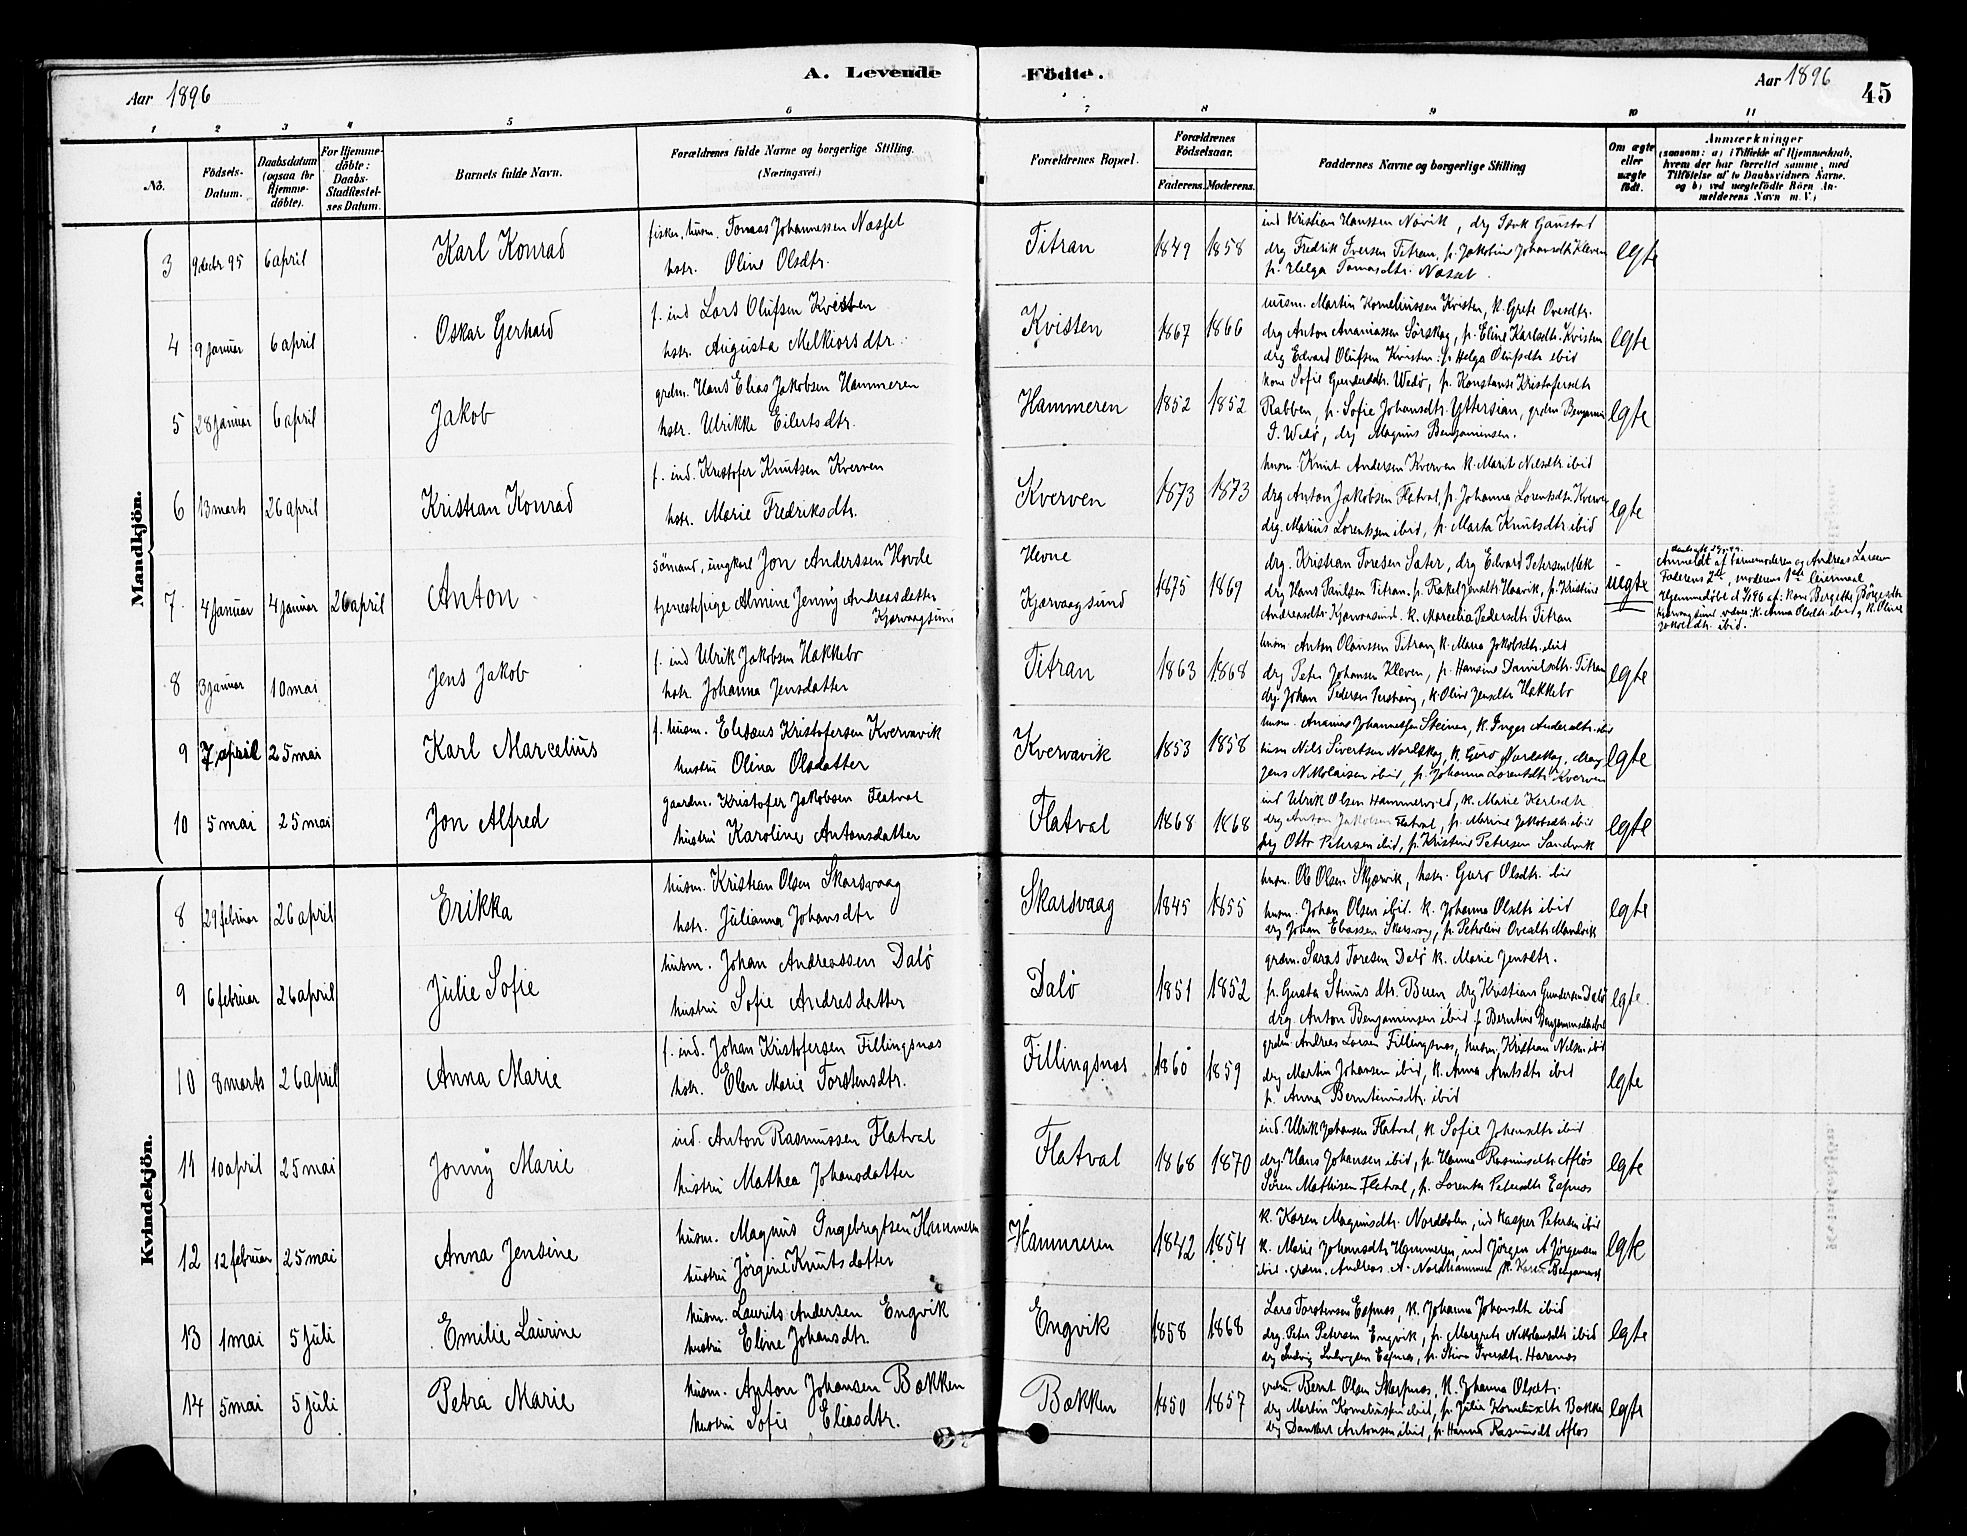 A. Levende Födte.
Aar 1896
Aar 1896
45
1 2 3 4 5 6 7 8 9 10 11
No.
Födsels-Datum.
Daabsdatum (ogsaa for Hjemme-döbte).
For Hjemme-döbte: Daabs-Stadfæstel-ses Datum.
Barnets fulde Navn.
Forældrenes fulde Navne og borgerlige Stilling. (Næringsvei.)
Forældrenes Bopæl.
Forældrenes Födselsaar.
Faderens. Moderens.
Faddernes Navne og borgerlige Stilling
Om ægte eller uægte födt.
Anmærkninger
(saasom: a) i Tilfælde af Hjemmedaab, hvem der har forrettet samme, med Tilföielse af to Daabsvidners Navne, og b) ved uægtefödte Börn An-melderens Navn m. V.)
Mandkjön.
3 9 decbr 95 6 april Karl Konrad
fisker, husm. Tomas Johannessen Nasset
hstr. Oline Olsdtr.
Titran 1849 1858
ind Kristian Hanssen Novik, drg Isak Gaustad
drg Fredrik Iversen Titran, p. Jakobine Johansdtr Kleven
p. Helga Tomasdtr. Nasset.
egte
4 9 januar 6 april Oskar Gerhard
f. ind Lars Olufsen Kvisten
hstr. Augusta Melkiorsdtr.
Kvisten 1867 1866
husm. Martin Korneliussen Kvisten, k. Grete Ovesdtr.
drg Anton Ananiassen Sørskag, p. Eline Karlsdtr. Kvisten
drg Edvard Olufsen Kvisten. p Helga Olufsdtr ibid
egte
5 28 januar 6 april Jakob
grdm. Hans Elias Jakobsen Hammeren
hstr. Ulrikke Eilertsdtr.
Hammeren 1852 1852
kone Sofie Gundersdtr. Wedø, p. Konstanse Kristofersdtr
Rabben, p. Sofie Johansdtr. Yttersian, grdm Benjamin
I. Wedø, drg Magnus Benjaminsen.
egte
6 13 marts 26 april Kristian Konrad
f. ind. Kristofer Knutsen Kverven
hstr. Marie Fredriksdtr.
Kverven 1873 1873
husm Knut Andersen Kverven k. Marit Nilsdtr ibid
drg Anton Jakobsen Flatval, p. Johanna Lorentsdtr. Kverven
drg. Marius Lorentssen ibid, p. Marta Knutsdtr ibid
egte
7 4 januar 4 januar 26 april Anton
sømand, ungkarl Jon Anderssen Hovde
tjenestepige Almine Jenny Andreasdatter
Kjørvaagsund
Hevne
Kjørvaagsund 1875 1869
drg. Kristian Toresen Sater, drg Edvard Petersen Mek
drg Hans Paulsen Titran, p. Rakel Jensdtr. Haavik, p. Kristine
Andreasdtr Kjørvaasund. k. Marcelia Pedersdtr Titran
uegte
Anmeldt af barnemoderen og Andreas Larsen
Faderens 2det, moderens 1ste leiermaal
Hjemmedøbt d 4/1 96 af: kone Bergitte
k. Anna Olsdtr ibid og k. Oline
Jakobsdtr. ibid.
8 3 januar 10 mai Jens Jakob
f. ind Ulrik Jakobsen Hakkebo
hstr. Johanna Jensdatter
Titran 1863 1868
husm. Anton Olaussen Titran, k. Maria Jakobsdtr. ibid
drg Peter Johansen Kleven, p. Hansine Danielsdtr. Titran
drg. Johan Pedersen, k. Oline Jensdtr Hakkebo
egte
9 7 april 25 mai Karl Marcelius
f. husm. Elisæus Kristofersen Kvervavik
hustru Olina Olsdatter
Kvervavik 1853 1858
husm. Ananias Johannessen Steinen, k. Inger Andersdtr. ibid
husm Nils Sivertsen Nordskag, k. Guro Nordskag, drng
Jens Nikolaisen ibid, p. Johanna Lorentsdtr Kverven
egte
10 5 mai 25 mai Jon Alfred
gaardm. Kristofer Jakobsen Flatval
hustru Karoline Antonsdatter
Flatval 1868 1868
ind Ulrik Olsen Hammervold, k. Marie Karlsdtr
drg Anton Jakobsen Flatval, p. Marine Jakobsdtr. ibid
drg Otto Petersen ibid, p. Kristine Petersen Sandvik
egte
Kvindekjön.
8 29 februar 26 april Erikka
husm. Kristian Olsen Skarsvaag
hstr. Julianna Johansdtr
Skarsvaag 1845 1855
husm. Ole Olsen Skjærvik, hstr. Guro Olsdtr. ibid
husm. Johan Olsen ibid. k. Johanna Olsdtr ibid
drg Johan Eliassen Skarsvaag, p. Petroline Ovesdtr Mandvik
egte
9 6 februar 26 april Julie Sofie
husm. Johan Andreassen Dalø
hustru Sofie Andresdatter
Dalø 1851 1852
grdm. Saras Toresen Dalø k. Marie Jensdtr.
p. Gusta Stinusdtr. Buen, drg Kristian Gundersen Dalø
drg Anton Benjaminsen ibid p Berntine Benjaminsdtr ibid
egte
10 8 marts 26 april Anna Marie
f. ind. Johan Kristofersen Fillingsnæs
hstr. Elen Marie Torstensdtr.
Fillingsnæs 1860 1859
grdm. Andreas Larsen Fillingsnæs, husm. Kristian Nilsen ibid
drg Martin Johansen ibid, k. Anna Arntsdtr ibid
p. Anna Berntinusdtr. ibid
egte
11 10 april 25 mai Jonny Marie
ind. Anton Rasmussen Flatval
hustru Mathea Johansdatter
Flatval 1868 1870
ind. Ulrik Johansen Flatval, k Sofie Johansdtr ibid
drg. Hans Johansen ibid, p. Hanna Rasmusdtr. Afløs
Søren Mathisen Flatval, p. Lorentse Petersdtr Espnes
egte
12 12 februar 25 mai Anna Jensine
husm. Magnus Ingebrigtsen Hammeren
hustru Jørgine Knutsdatter
Hammeren 1842 1854
k. Karen Magnusdtr. Norddalen, ind Kasper Petersen ibid
k. Marie Johansdtr Hammeren, ind Jørgen A Jørgensen
ibid. grdm. Andreas A. Nordhammer, k. Karen Benjaminsd
egte
13 1 mai 5 juli Emilie Laurine
husm. Laurits Andersen Engvik
hustru Eline Johansdtr.
Engvik 1858 1868
Lars Torstensen Espnes, k. Johanna Johansdtr ibid
drg. Peter Petersen Engvik, p. Margrete Nikolaisdtr ibid
drg Ludvig Ludvigsen Espnes, p. Stina Iversdtr. Harenes
egte
14 5 mai 5 juli Petra Marie
husm. Anton Johansen Bakken
hustru Sofie Eliasdtr.
Bakken 1850 1857
grdm. Bernt Olsen Skarpnes, k. Johanna Olsdtr.
drg Martin Korneliussen ibid, p. Julie Korneliusdtr Bakken
drg Dankert Antonsen ibid, p. Hanna Rasmusdtr Afløs
egte